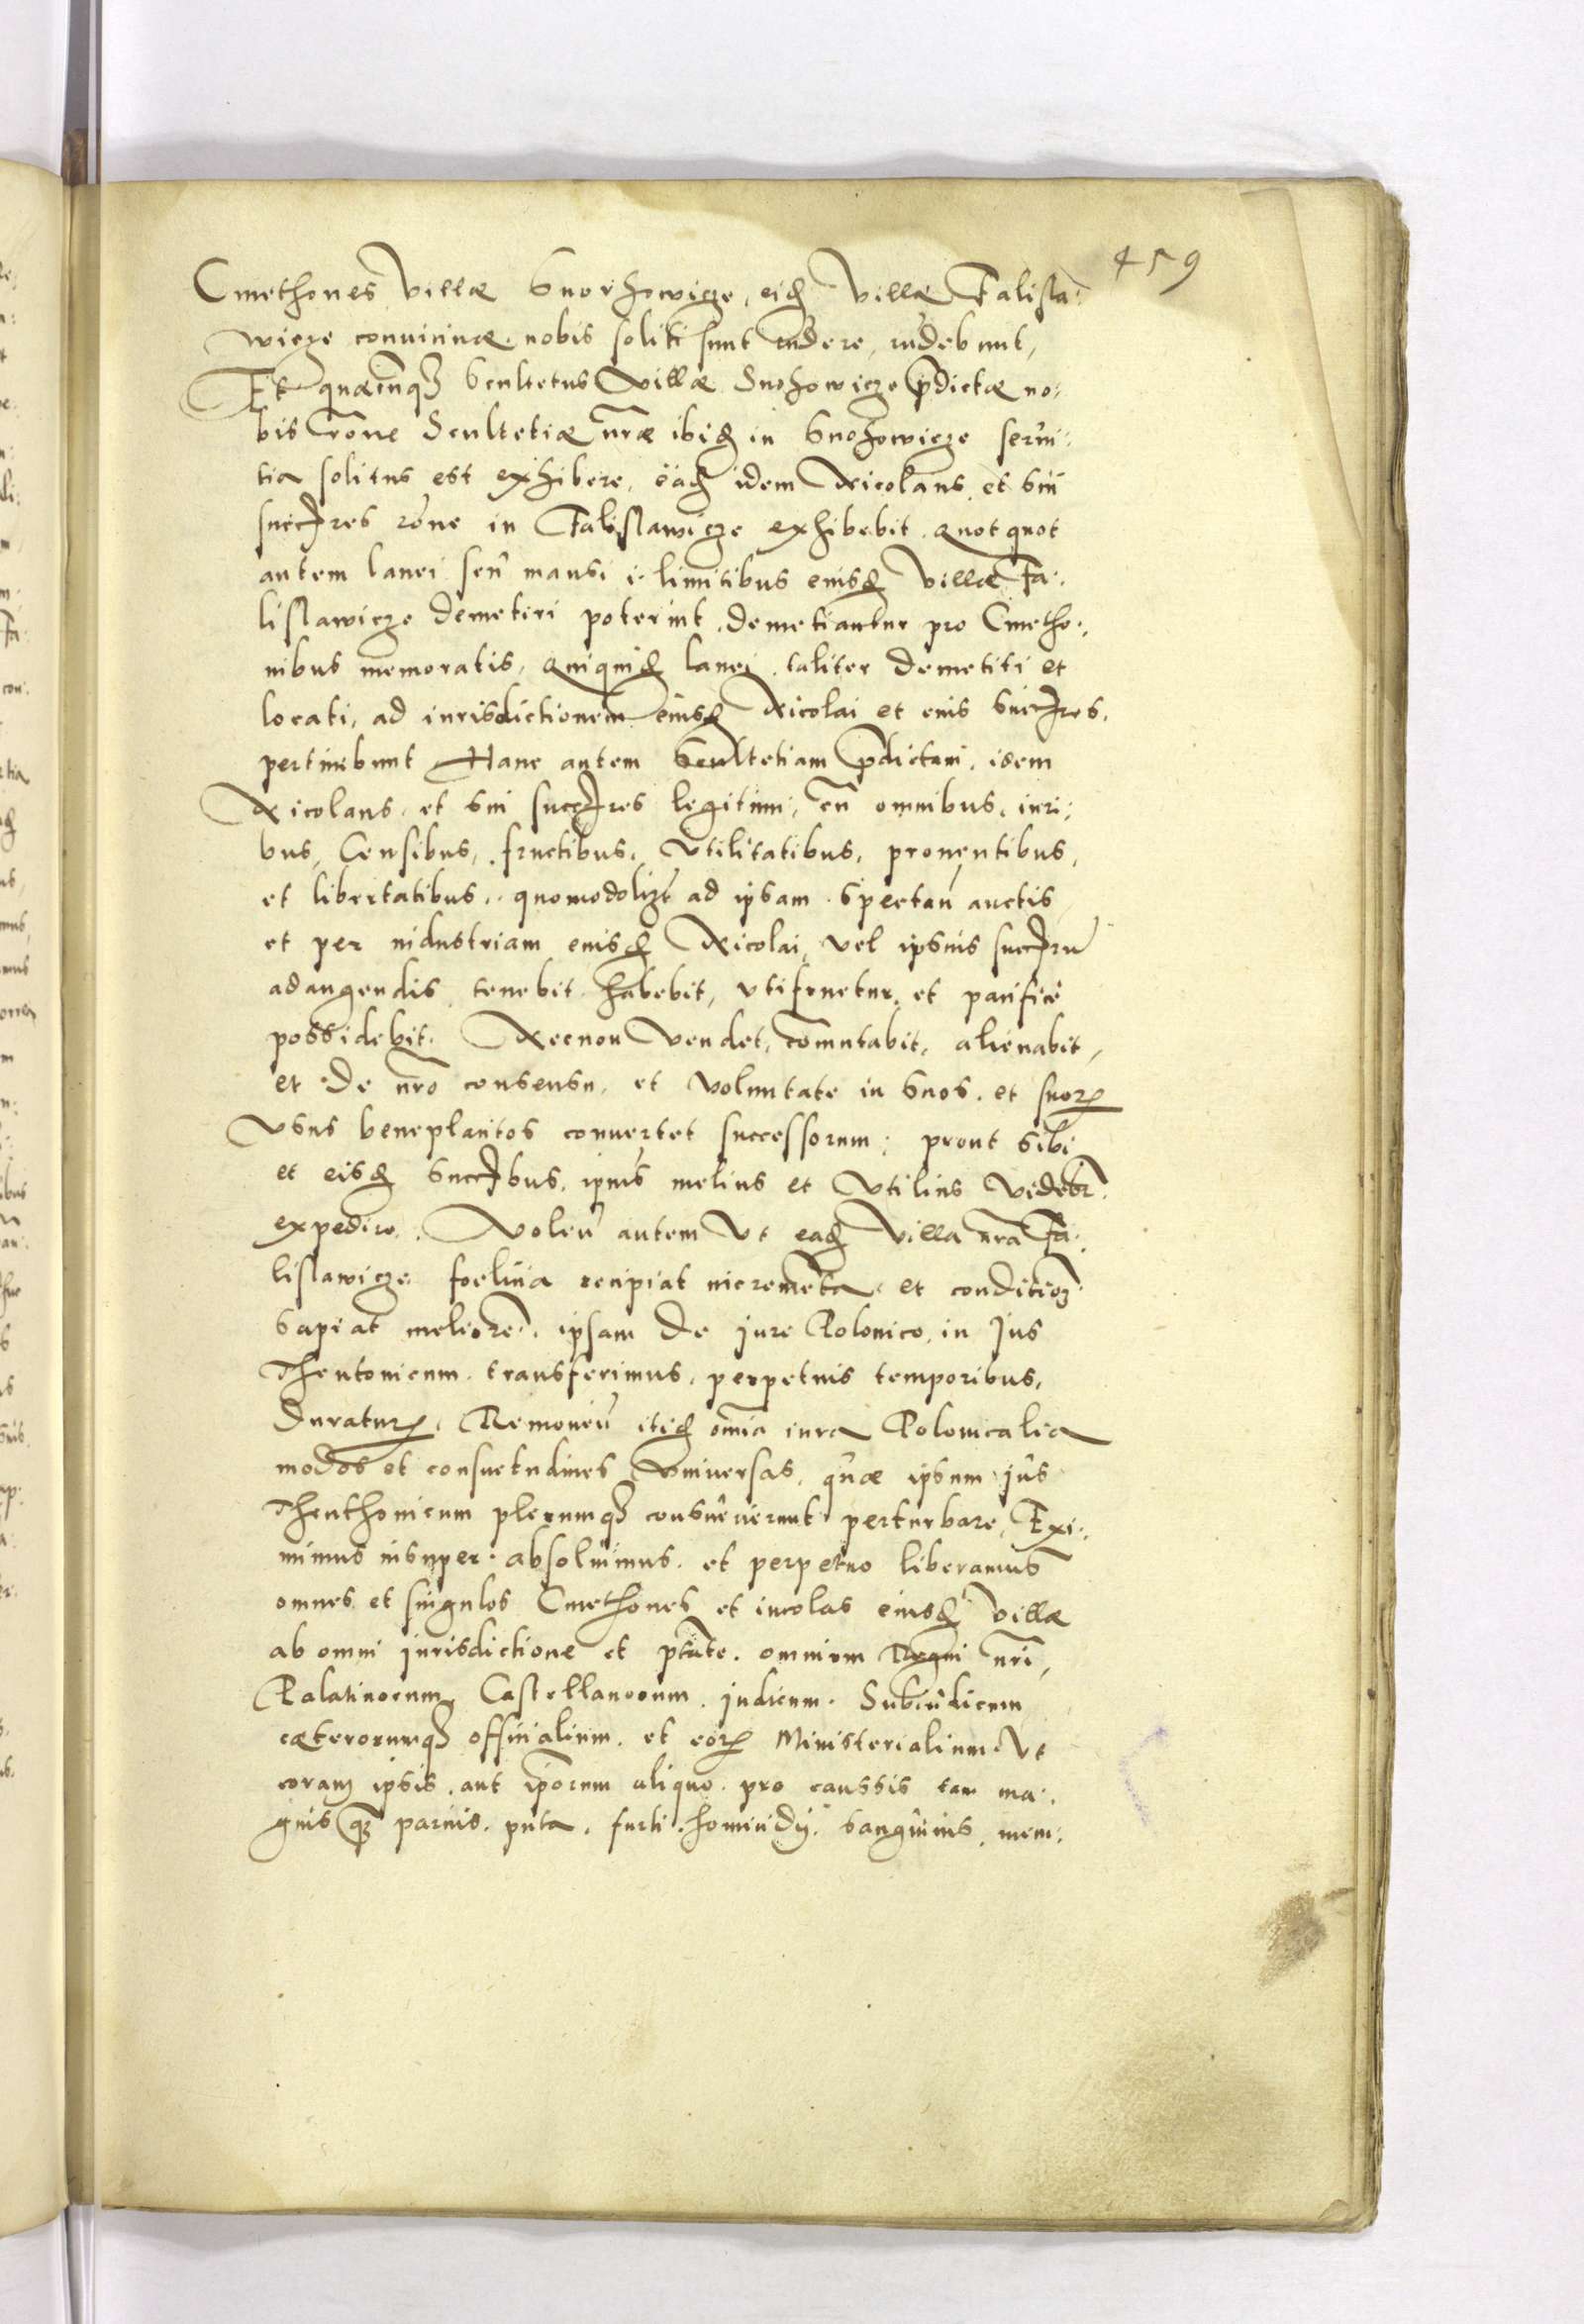 459
Cmethones Villæ Snochowicze, eid Villæ Falisla:
wicze conuicinæ nobis soliti sunt indere, indebunt,
Et quæcūq3 Scultetus Villæ Snochowicze p̄dictæ no:
bis rōne Scultetiæ nr̄æ ibid in Snochowicze serui:
tia solitus est exhibere, ead idem Nicolaus et sui
succ̄res rōne in Falislawicze exhibebit. Quot quot
autem lanei seu mansi i limitibus eiusd Villæ Fa:
lislawicze demetiri poterint, demetiantur pro Cmetho:
nibus memoratis, Quiquid lanei taliter demetiti et
locati, ad iurisdictionem eiusd Nicolai et eius succ̄res
pertinebunt Hanc autem Scultetiam p̄dictam, idem
Nicolaus et sui succ̄res legitimi, cū omnibus iuri:
bus, Censibus, fructibus, Vtilitatibus, prouentibus,
et libertatibus, quomodolizt ad ipsam spectan̄ auctis
et per industriam eiusd Nicolai, vel ipsius succ̄rū
adaugendis tenebit habebit, vtifruetur et pacifice
possidebit. Necnon Vendet, com̄utabit, alienabit,
et de nr̄o consensu, et Voluntate in suos et suor
Vsus beneplacitos conuertet successorum, prout sibi
et eisd succ̄bus, ipsius melius et Vtilius Videbr̄
expedire. Volen̄ autem Vt ead Villa nr̄a Fa:
lislawicze foelicia recipiat incremēta et conditionē
sapiat meliorē, ipsam de jure Polonico in Jus
Theutonicum transferimus, perpetuis temporibus,
duratur. Remouen̄ itid om̄ia iura Polonicalia
modos et consuetudines Vniuersas, quæ ipsum jus
Theuthonicum plerumq3 consueuerunt perturbare, Exi:
mimus insuper absoluimus et perpetuo liberamus
omnes et singulos Cmethones et incolas eiusd Villæ
ab omni jurisdictione et ptāte omnium Regni nr̄i,
Palatinorum, Castellanorum, judicum, Subiudicum
cæterorumq3 officialium et eor Ministerialium, Vt
coram ipsis aut ip̄orum aliquo pro caussis tam ma:
gnis q3 paruis, puta, furti, homicidij, sanguinis, mem: